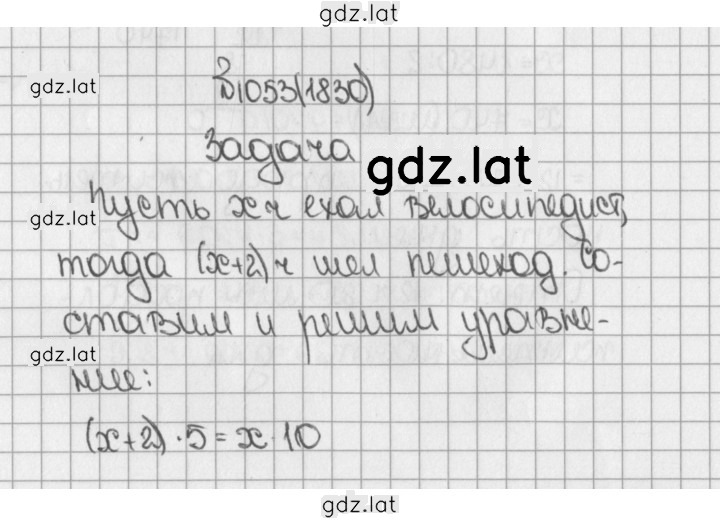 gdz.lat
gdz.lat
№1053(1830)
Задача
gdz.lat
gdz.lat
Пусть x ч ехал велосипедист,
тогда (x+2) ч шел пешеход. Со-
ставим и решим уравне-
gdz.lat
ние:
(x+2)·5=x·10
gdz.lat